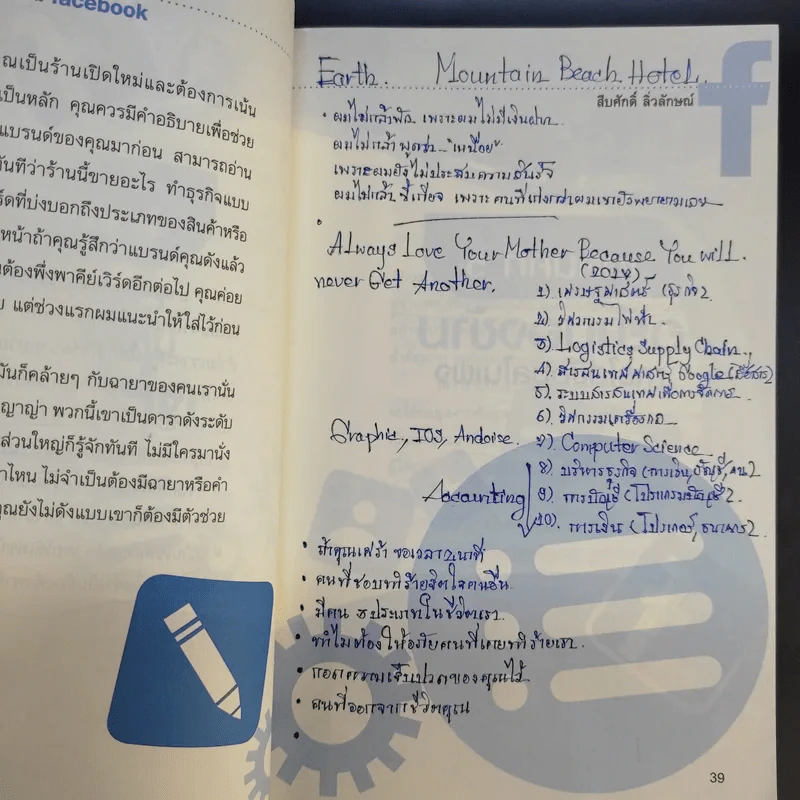 facebook
คุณเป็นร้านเปิดใหม่และต้องการเน้น
เป็นหลัก คุณควรมีคำอธิบายเพื่อช่วย
แบรนด์ของคุณมาก่อน สามารถอ่าน
ทันทีว่าร้านนี้ขายอะไร ทำธุรกิจแบบ
ร์ดที่บ่งบอกถึงประเภทของสินค้าหรือ
หน้าถ้าคุณรู้สึกว่าแบรนด์คุณดังแล้ว
ต้องพึ่งพาคีย์เวิร์ดอีกต่อไป คุณค่อย
แต่ช่วงแรกผมแนะนำให้ใส่ไว้ก่อน
มันก็คล้ายๆ กับฉายาของคนเรานั่น
ญาญ่า พวกนี้เขาเป็นดาราดังระดับ
ส่วนใหญ่ก็รู้จักทันที ไม่มีใครมานั่ง
าไหน ไม่จำเป็นต้องมีฉายาหรือคำ
คุณยังไม่ดังแบบเขาก็ต้องมีตัวช่วย
Earth. Mountain Beach Hotel.
สืบศักดิ์ ลิ่วลักษณ์
f
• ผมไม่กล้าพัก เพราะผมไม่มีเงินฝาก.
ผมไม่กล้า พูดว่า "เหนื่อย"
เพราะผมยังไม่ประสบความสำเร็จ
ผมไม่กล้า ขี้เกียจ เพราะคนที่เก่งกว่าผมเขายังพยายามเลย
Always Love Your Mother Because You will.
never Get Another.
1). เศรษฐศาสตร์ (ธุรกิจ).
2). วิศวกรรมไฟฟ้า.
3). Logistics Supply Chain.
4). สารสนเทศศาสตร์ Google
5). ระบบสารสนเทศเพื่อการจัดการ
6). วิศวกรรมเครื่องกล
Graphic, IOS, Andoise. 7). Computer Science
8). บริหารธุรกิจ (การเงิน, บัญชี, คน).
Accounting 9). การบัญชี (โปรแกรมบัญชี).
10). การเงิน (โบรกเกอร์, ธนาคาร).
• ถ้าคุณเศร้า ขอเวลา นาที
• คนที่ชอบทำร้ายจิตใจคนอื่น.
• มีคน 3 ประเภทในชีวิตเรา.
• ทำไมต้องให้อภัยคนที่เคยทำร้ายเรา.
• กอดความเจ็บปวดของคุณไว้
• คนที่ออกจากชีวิตคุณ
39